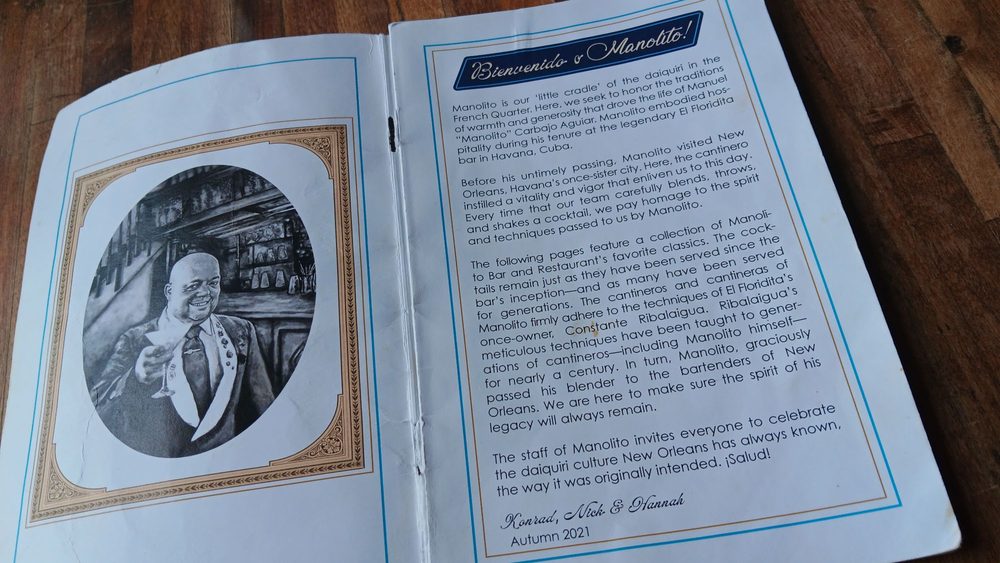 Bienvenido a Manolito!
Manolito is our 'little cradle' of the daiquiri in the
French Quarter. Here, we seek to honor the traditions
of warmth and generosity that drove the life of Manuel
"Manolito" Carbajo Aguiar. Manolito embodied hos-
pitality during his tenure at the legendary El Floridita
bar in Havana, Cuba.
Before his untimely passing, Manolito visited New
Orleans, Havana's once-sister city. Here, the cantinero
instilled a vitality and vigor that enliven us to this day.
Every time that our team carefully blends, throws,
and shakes a cocktail, we pay homage to the spirit
and techniques passed to us by Manolito.
The following pages feature a collection of Manoli-
to Bar and Restaurant's favorite classics. The cock-
tails remain just as they have been served since the
bar's inception—and as many have been served
for generations. The cantineros and cantineras of
Manolito firmly adhere to the techniques of El Floridita's
once-owner, Constante Ribalaigua. Ribalaigua's
meticulous techniques have been taught to gener-
ations of cantineros—including Manolito himself—
for nearly a century. In turn, Manolito, graciously
passed his blender to the bartenders of New
Orleans. We are here to make sure the spirit of his
legacy will always remain.
The staff of Manolito invites everyone to celebrate
the daiquiri culture New Orleans has always known,
the way it was originally intended. ¡Salud!
Konrad, Nick & Hannah
Autumn 2021